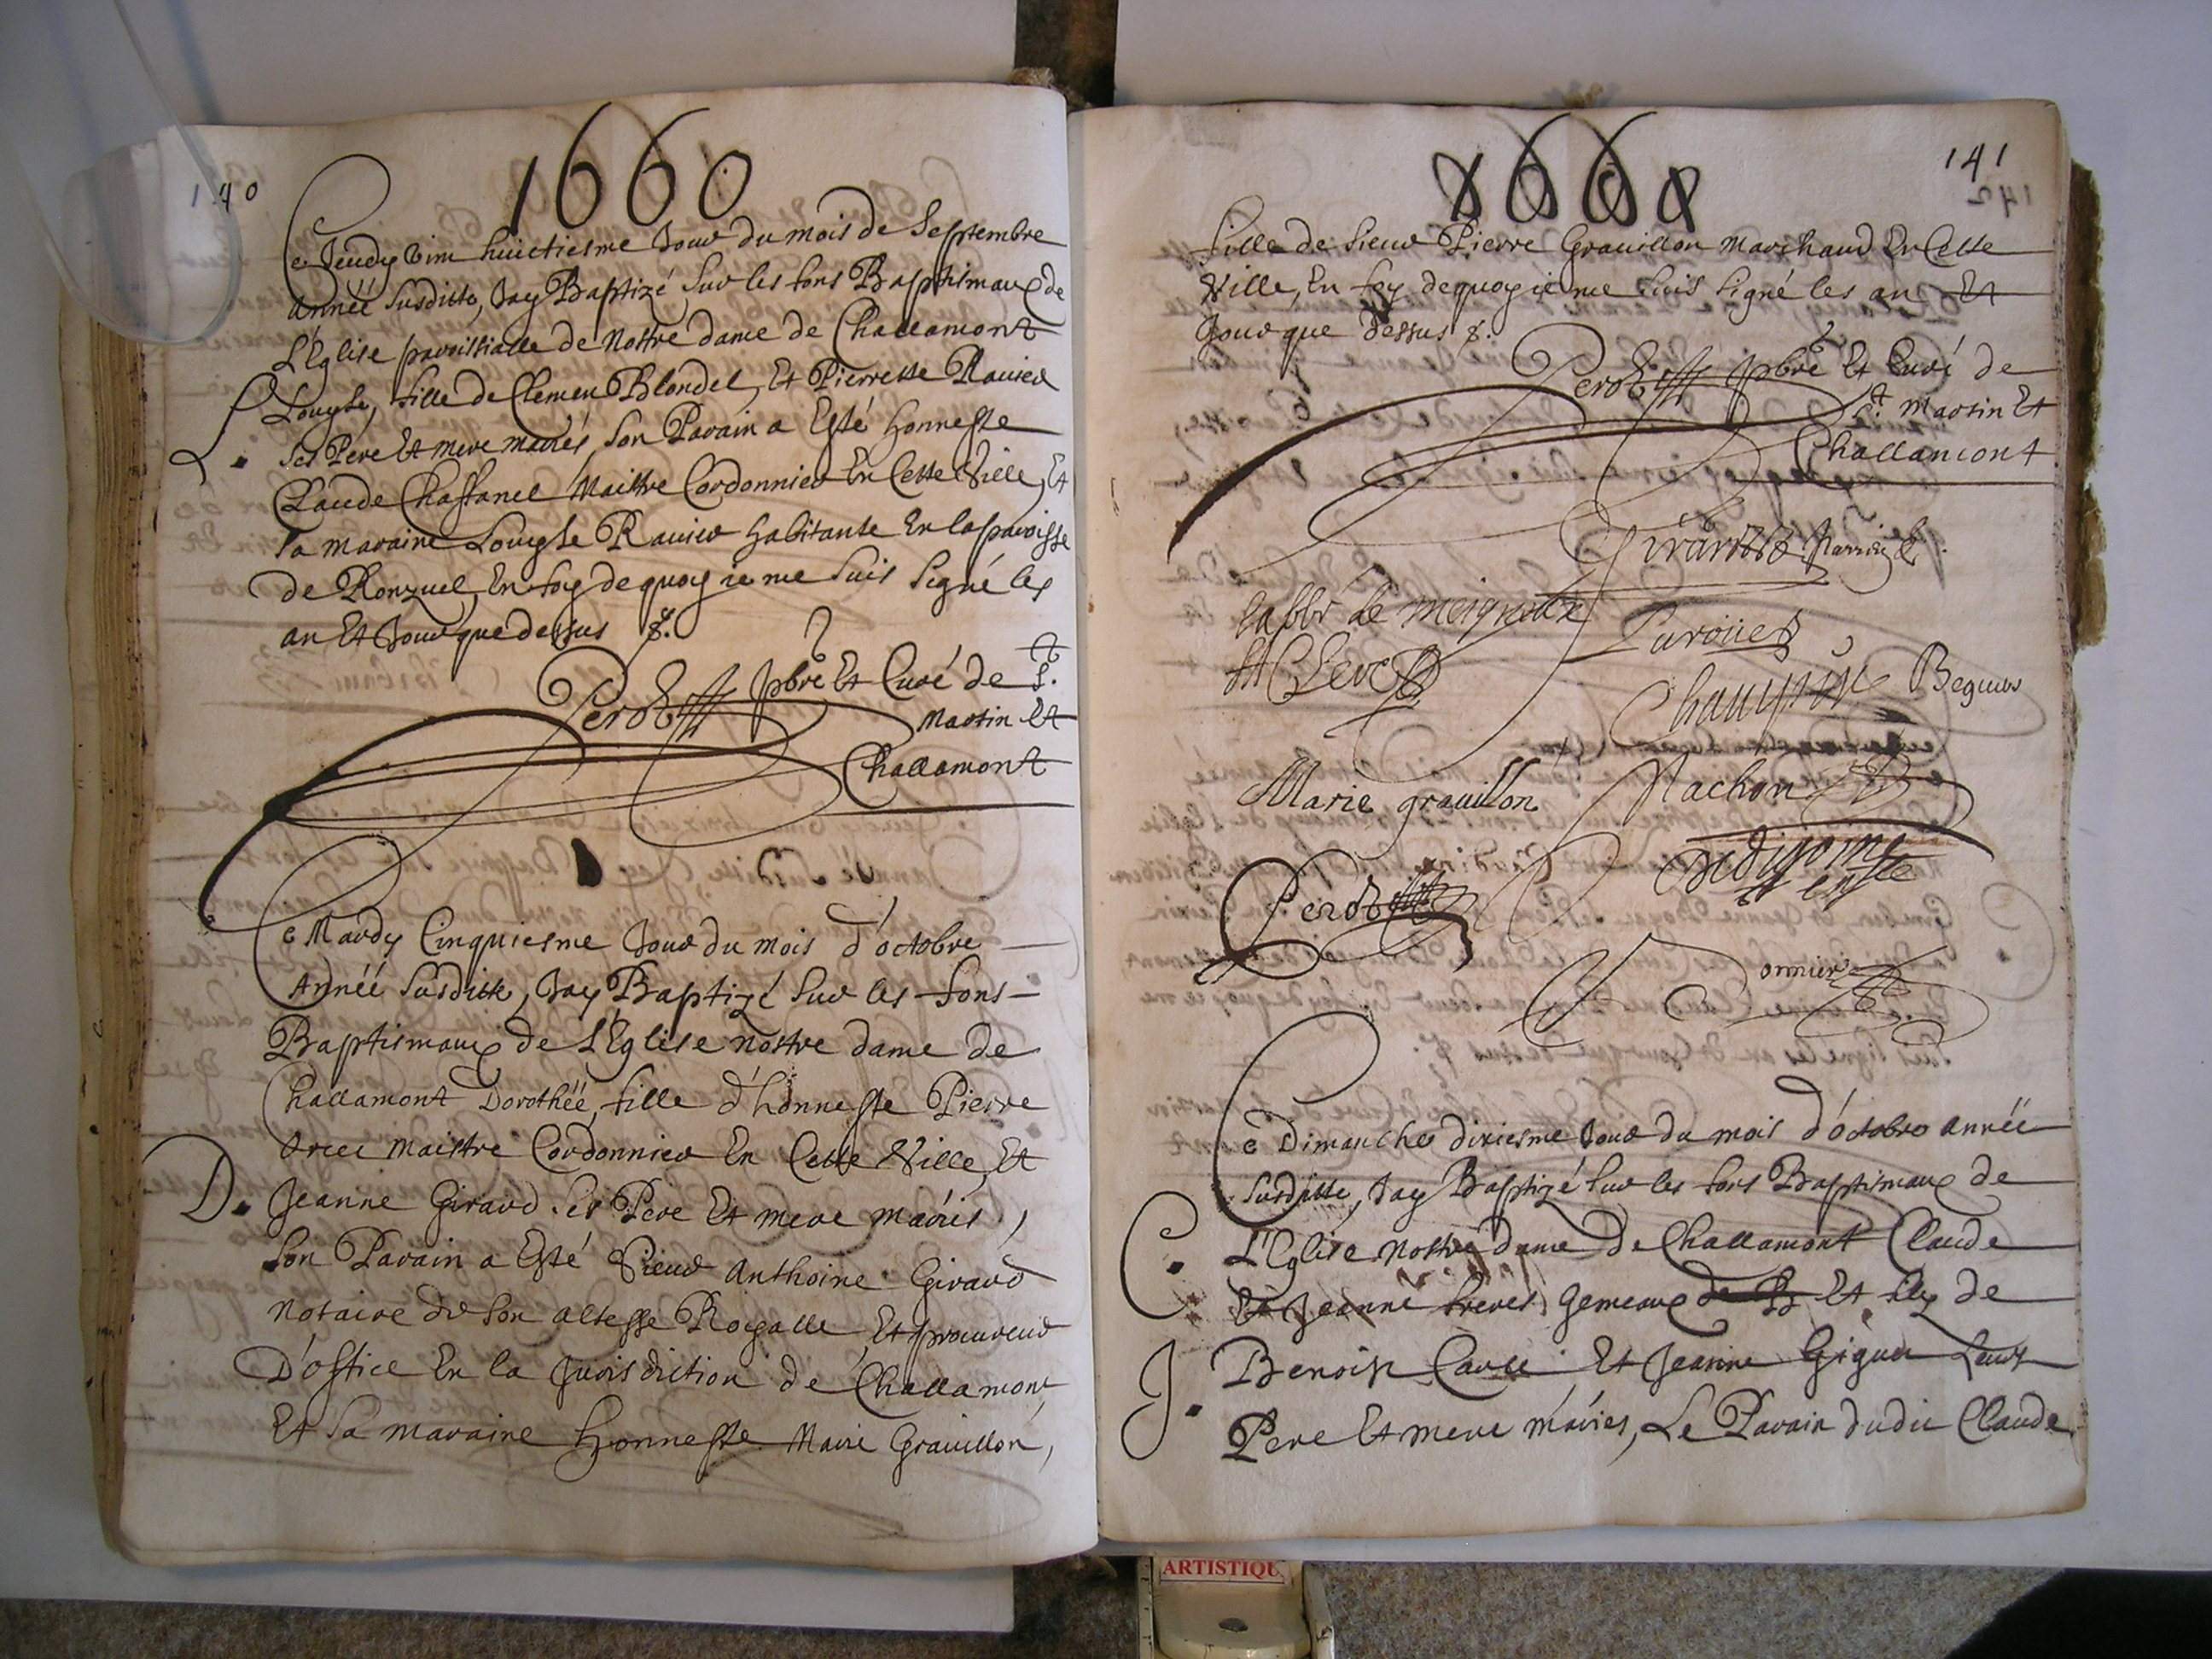 140
1660
Ce Jeudy vint huictiesme Jour du mois de Septembre
Année susditte, Jay Baptizé Sur les fons Baptismaux de
L'Eglise parroissialle de Nostre dame de Challamont
Louyse, fille de Clemen Blondel, Et Pierrette Ravier
L.
Ses Pere Et mere mariés, Son Parain a Esté honneste
Claude Chastanel Maistre Cordonnier En Cette Ville, Et
Sa maraine Louyse Ravier habitante En la paroisse
de Ronzuel, En foy de quoy ie me suis Signé les
an Et Jour que dessus &.
Perot pbre Et Curé de St.
Martin Et
Challamont
Ce Mardy Cinquiesme Jour du mois d'octobre
Année susditte, Jay Baptizé Sur les fons
Baptismaux de L'Eglise nostre dame de
Challamont Dorothéé, fille d'honneste Pierre
maistre Cordonnier En Cette Ville, Et
D.
Jeanne Girard Ses Pere Et mere mariés,
Son Parain a Esté Sieur Anthoine Girard
Notaire de Son altesse Royalle, Et procureur
D'office En la Jurisdition de Challamont
Et Sa maraine honneste Marie Grauillon,
141
142
1660
fille de Sieur Pierre Grauillon Marchand En Cette
Ville, En foy de quoy ie me suis Signé les an Et
Jour que dessus &.
Perot pbre Et Curé de
St. Martin Et
Challamont
Girard
Chauy
Marie grauillon
Nachon
Perot
Ce Dimanche dixiesme Jour du mois d'octobre année
susditte, Jay Baptizé Sur les fons Baptismaux de
C.
L'Eglise nostre dame de Challamont Claude
Et Jeanne freres Gemeaux de B Et filz de
J.
Benoist Et Jeanne Leurs
Pere Et mere mariés, Le Parain dudit Claude
ARTISTIQU